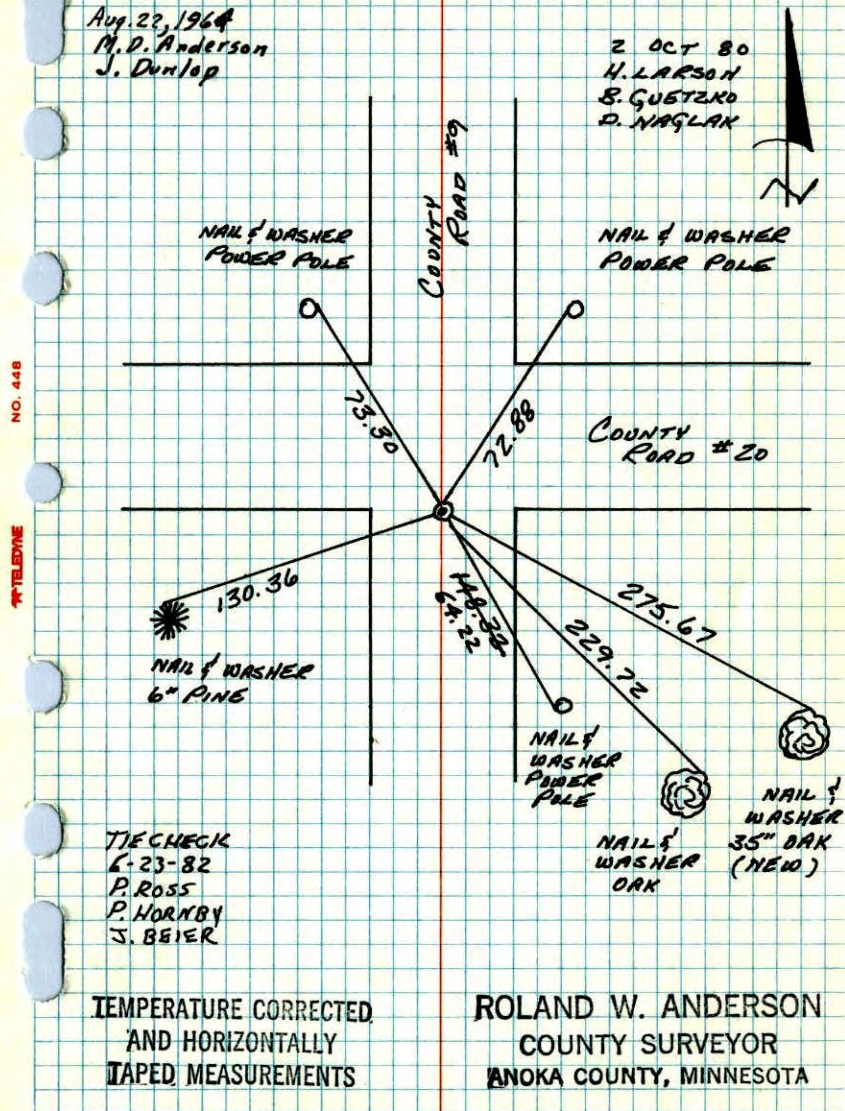 Aug. 22, 1964
M.D. Anderson
J. Dunlop
2 OCT 80
H. LARSON
B. GUETZKO
D. NAGLAK
N
COUNTY
ROAD #9
NAIL & WASHER
POWER POLE
NAIL & WASHER
POWER POLE
73.30
72.88
COUNTY
ROAD #20
NO. 448
TELEDYNE
130.36
148.32
64.22
229.72
275.67
NAIL & WASHER
6" PINE
NAIL &
WASHER
POWER
POLE
NAIL &
WASHER
OAK
NAIL &
WASHER
35" OAK
(NEW)
TIE CHECK
6-23-82
P. ROSS
P. HORNBY
J. BEIER
TEMPERATURE CORRECTED
AND HORIZONTALLY
TAPED MEASUREMENTS
ROLAND W. ANDERSON
COUNTY SURVEYOR
ANOKA COUNTY, MINNESOTA